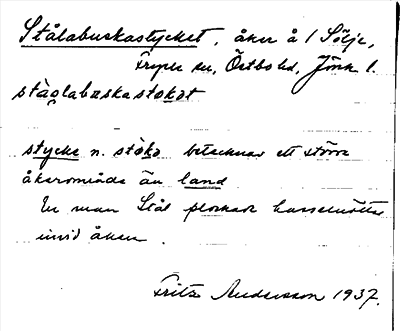 Stålabuskastycket, åker å 1 Sölje,
sn, Östbol hd, Jönk l.
stålabuskastokət
stycke n. stökə betecknar ett större
åkerområde än land
En man Stål plockade hasselnötter
invid åkern.
Fritz Andersson 1937.